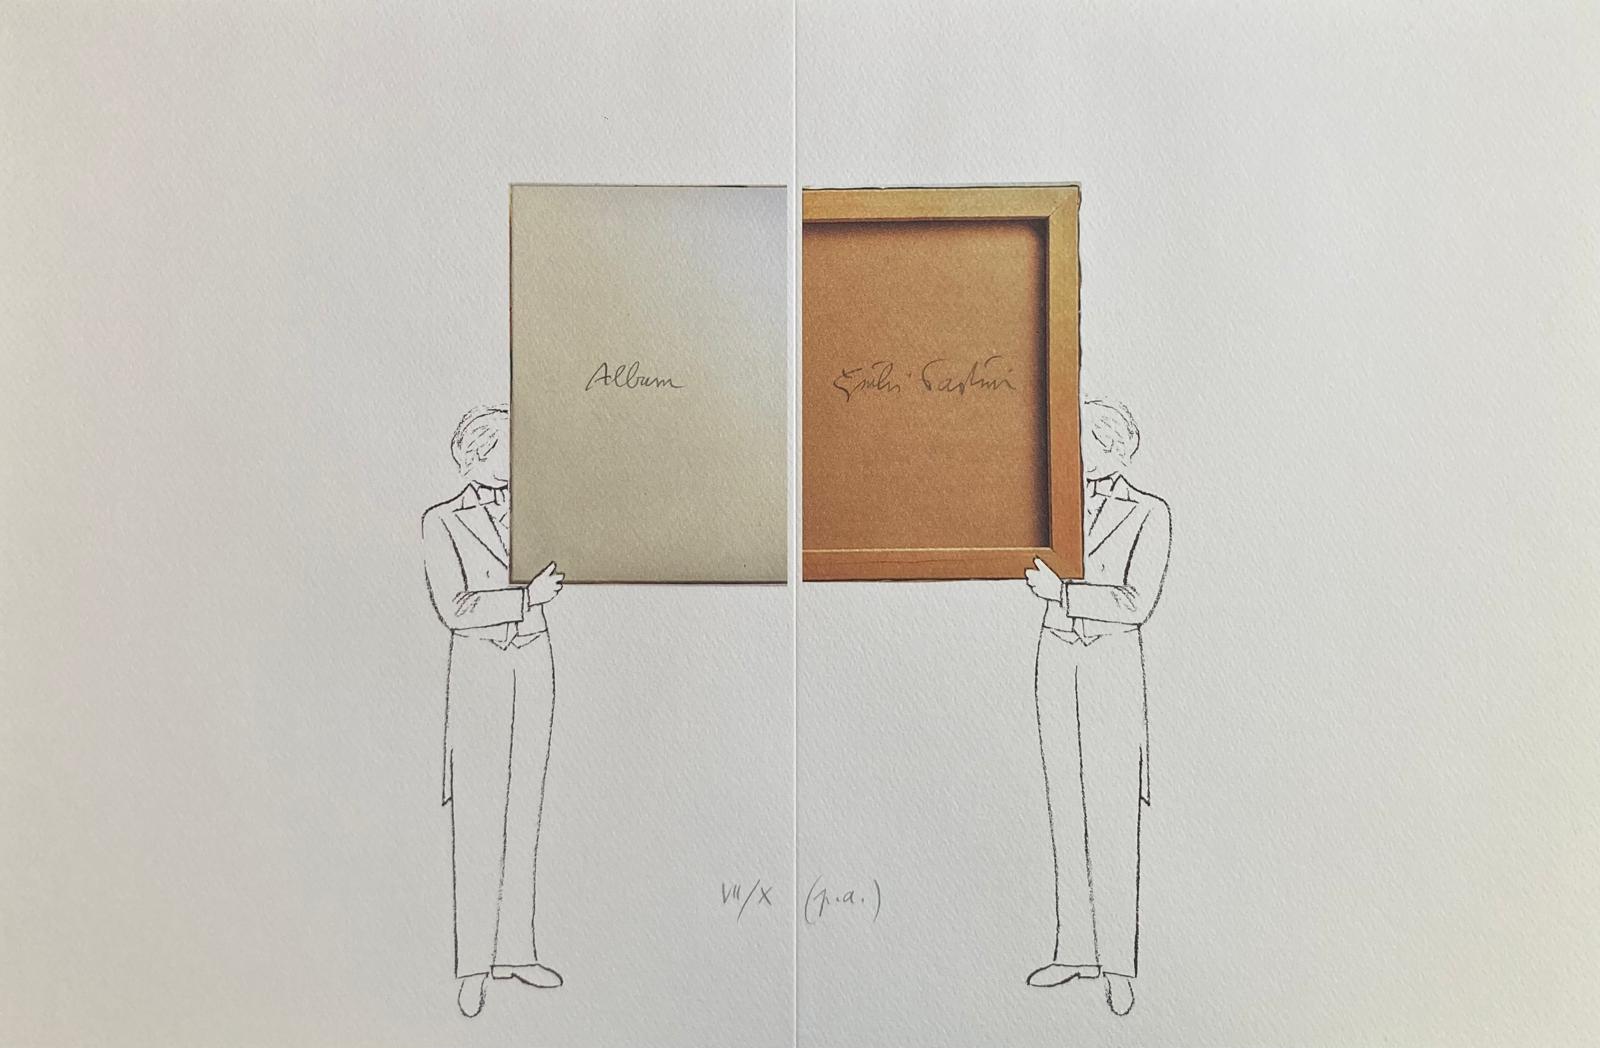 Album Giulio Paolini
VII/X (p.a.)